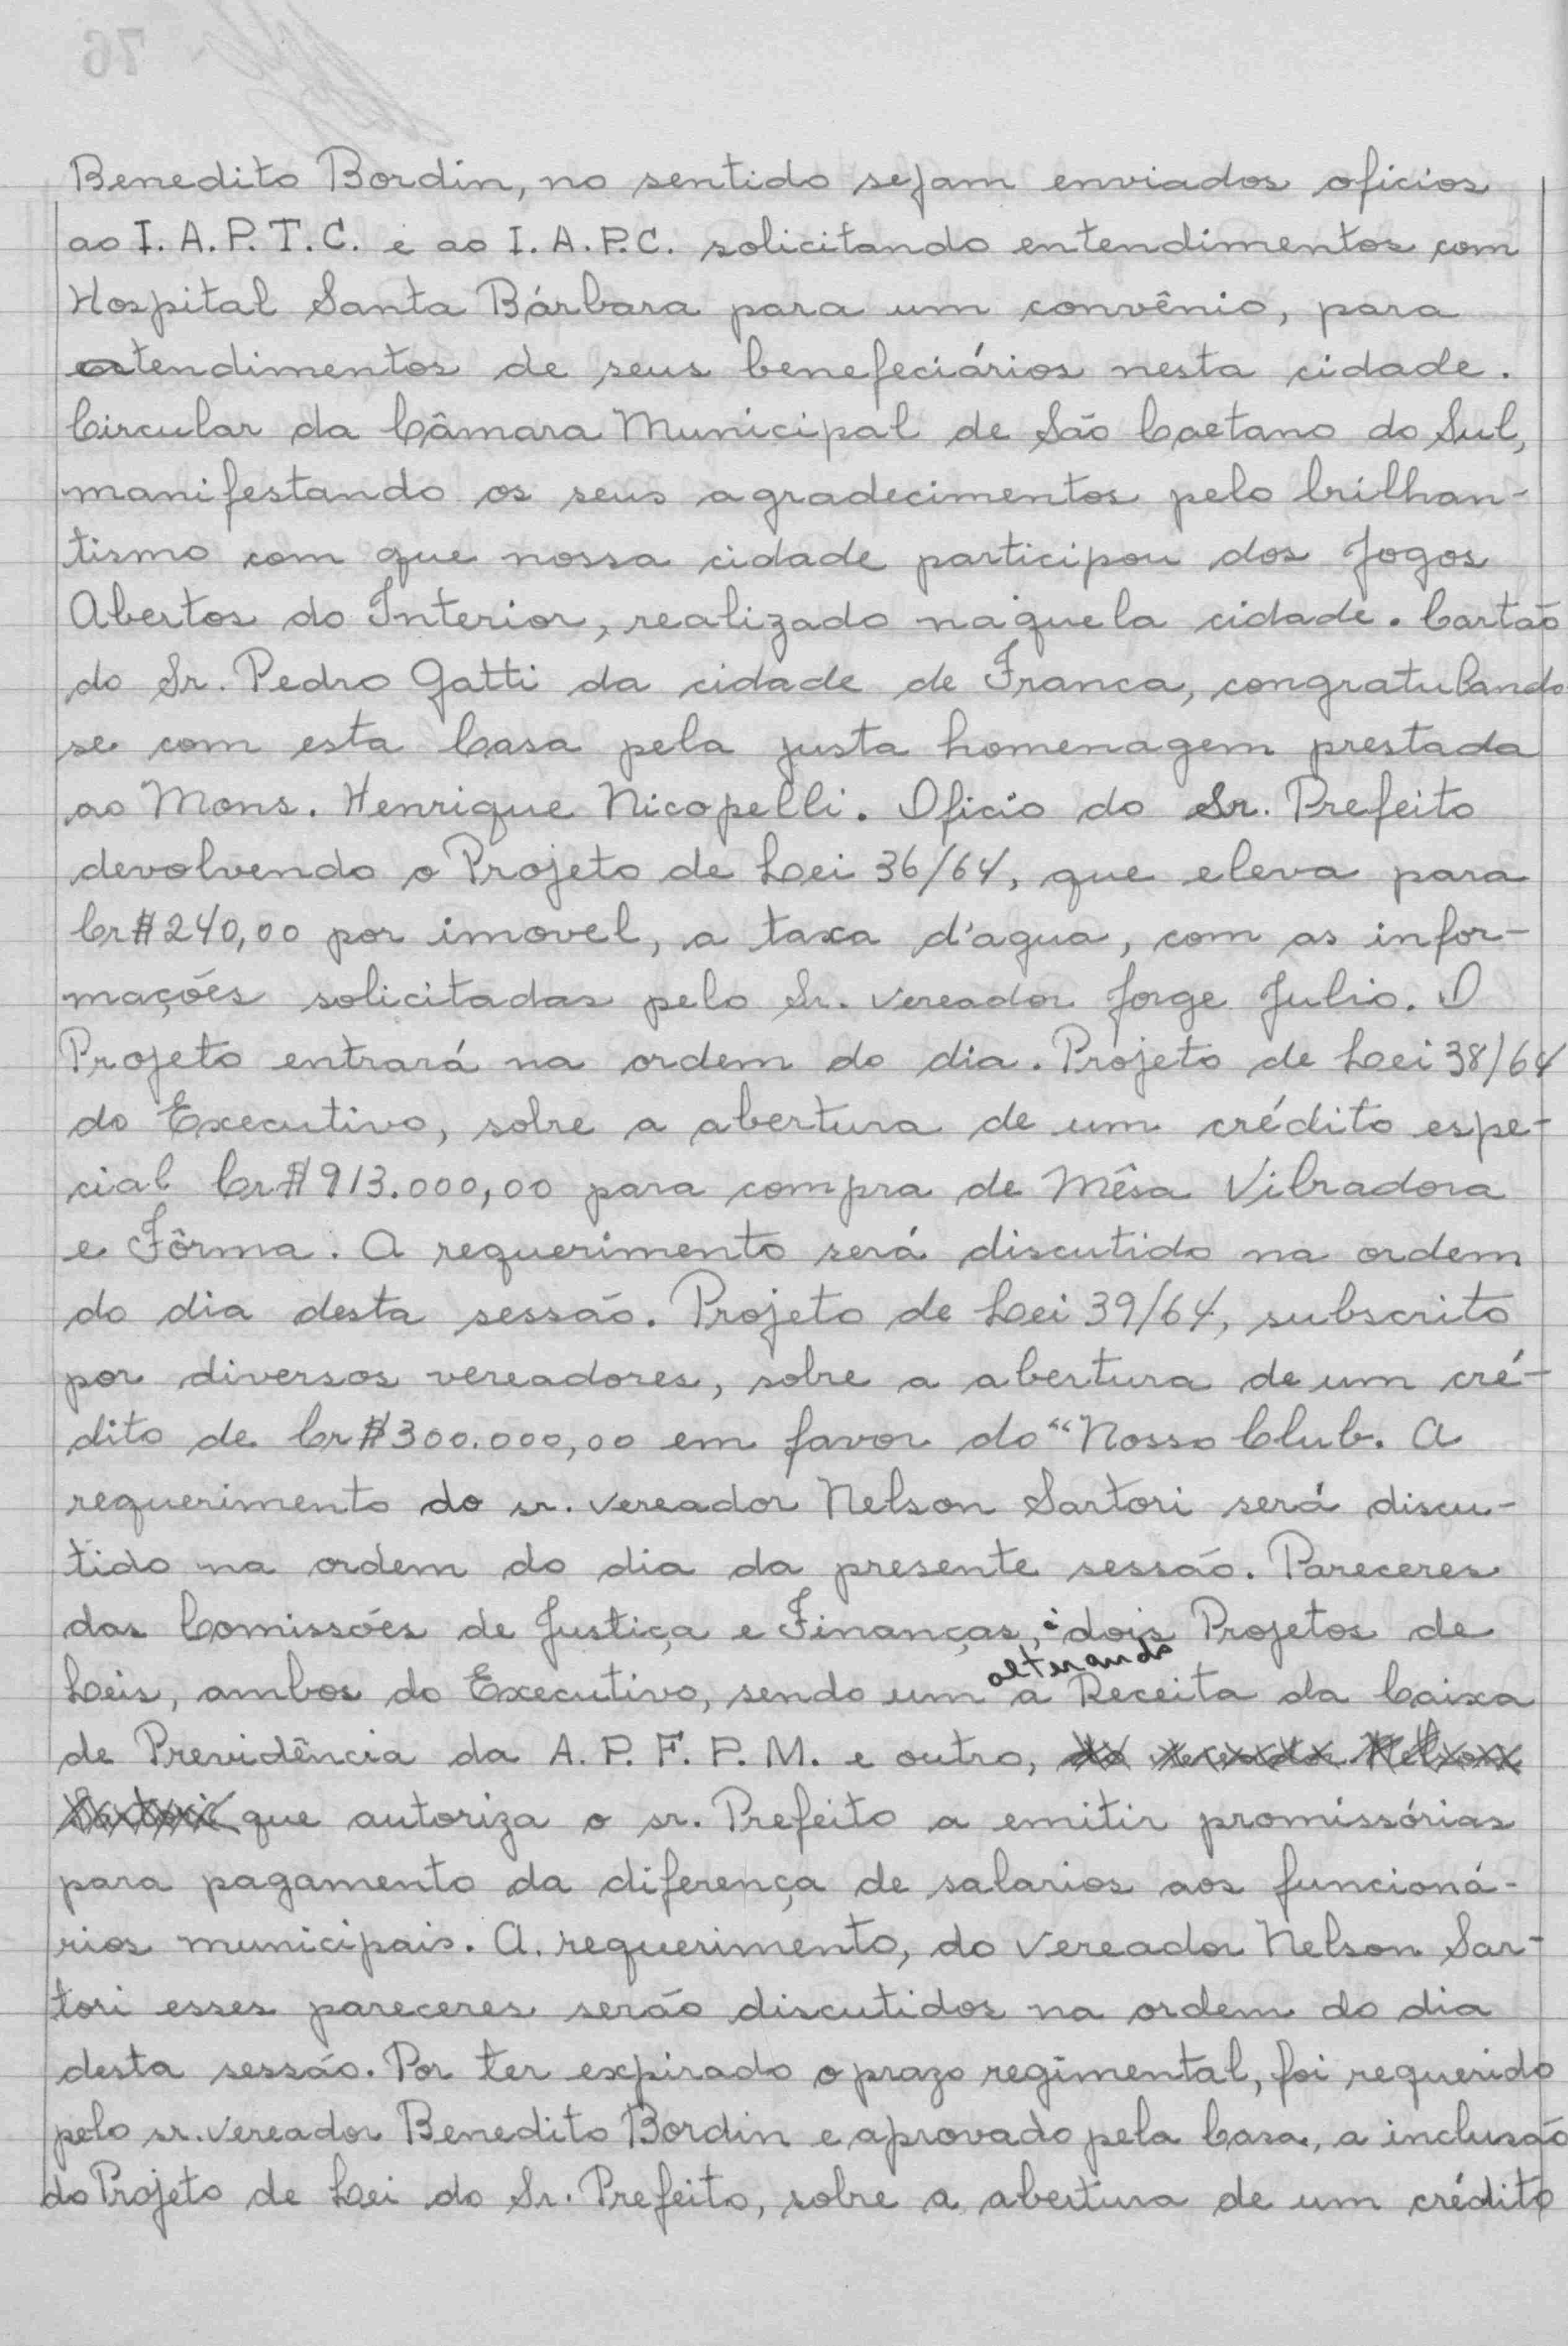 Benedito Bordin, no sentido sejam enviados oficios
ao I. A. P. T. C. e ao I. A. P. C. solicitando entendimentos com
Hospital Santa Bárbara para um convênio, para
atendimentos de seus benefeciários nesta cidade.
Circular da Câmara Municipal de São Caetano do Sul,
manifestando os seus agradecimentos pelo brilhan-
tismo com que nossa cidade participou dos Jogos
Abertos do Interior, realizado naquela cidade. Cartão
do Sr. Pedro Gatti da cidade de Franca, congratulando
se com esta Casa pela justa homenagem prestada
ao Mons. Henrique Nicopelli. Oficio do Sr. Prefeito
devolvendo o Projeto de Lei 36/64, que eleva para
Cr$ 240,00 por imovel, a taxa d'agua, com as infor-
mações solicitadas pelo Sr. Vereador Jorge Julio. O
Projeto entrará na ordem do dia. Projeto de Lei 38/64
do Executivo, sobre a abertura de um crédito espe-
cial Cr$ 913.000,00 para compra de Mêsa Vibradora
e Fôrma. A requerimento será discutido na ordem
do dia desta sessão. Projeto de Lei 39/64, subscrito
por diversos vereadores, sobre a abertura de um cré-
dito de Cr$ 300.000,00 em favor do "Nosso Club. A
requerimento do sr. Vereador Nelson Sartori será discu-
tido na ordem do dia da presente sessão. Pareceres
das Comissões de Justiça e Finanças, à dois Projetos de
Leis, ambos do Executivo, sendo um alterando a Receita da Caixa
de Previdência da A. P. F. P. M. e outro, do vereador Nelson
Sartori que autoriza o sr. Prefeito a emitir promissórias
para pagamento da diferença de salarios aos funcioná-
rios municipais. A. requerimento, do Vereador Nelson Sar-
tori esses pareceres serão discutidos na ordem do dia
desta sessão. Por ter expirado o prazo regimental, foi requerido
pelo sr. Vereador Benedito Bordin e aprovado pela Casa, a inclusão
do Projeto de Lei do Sr. Prefeito, sobre a abertura de um crédito